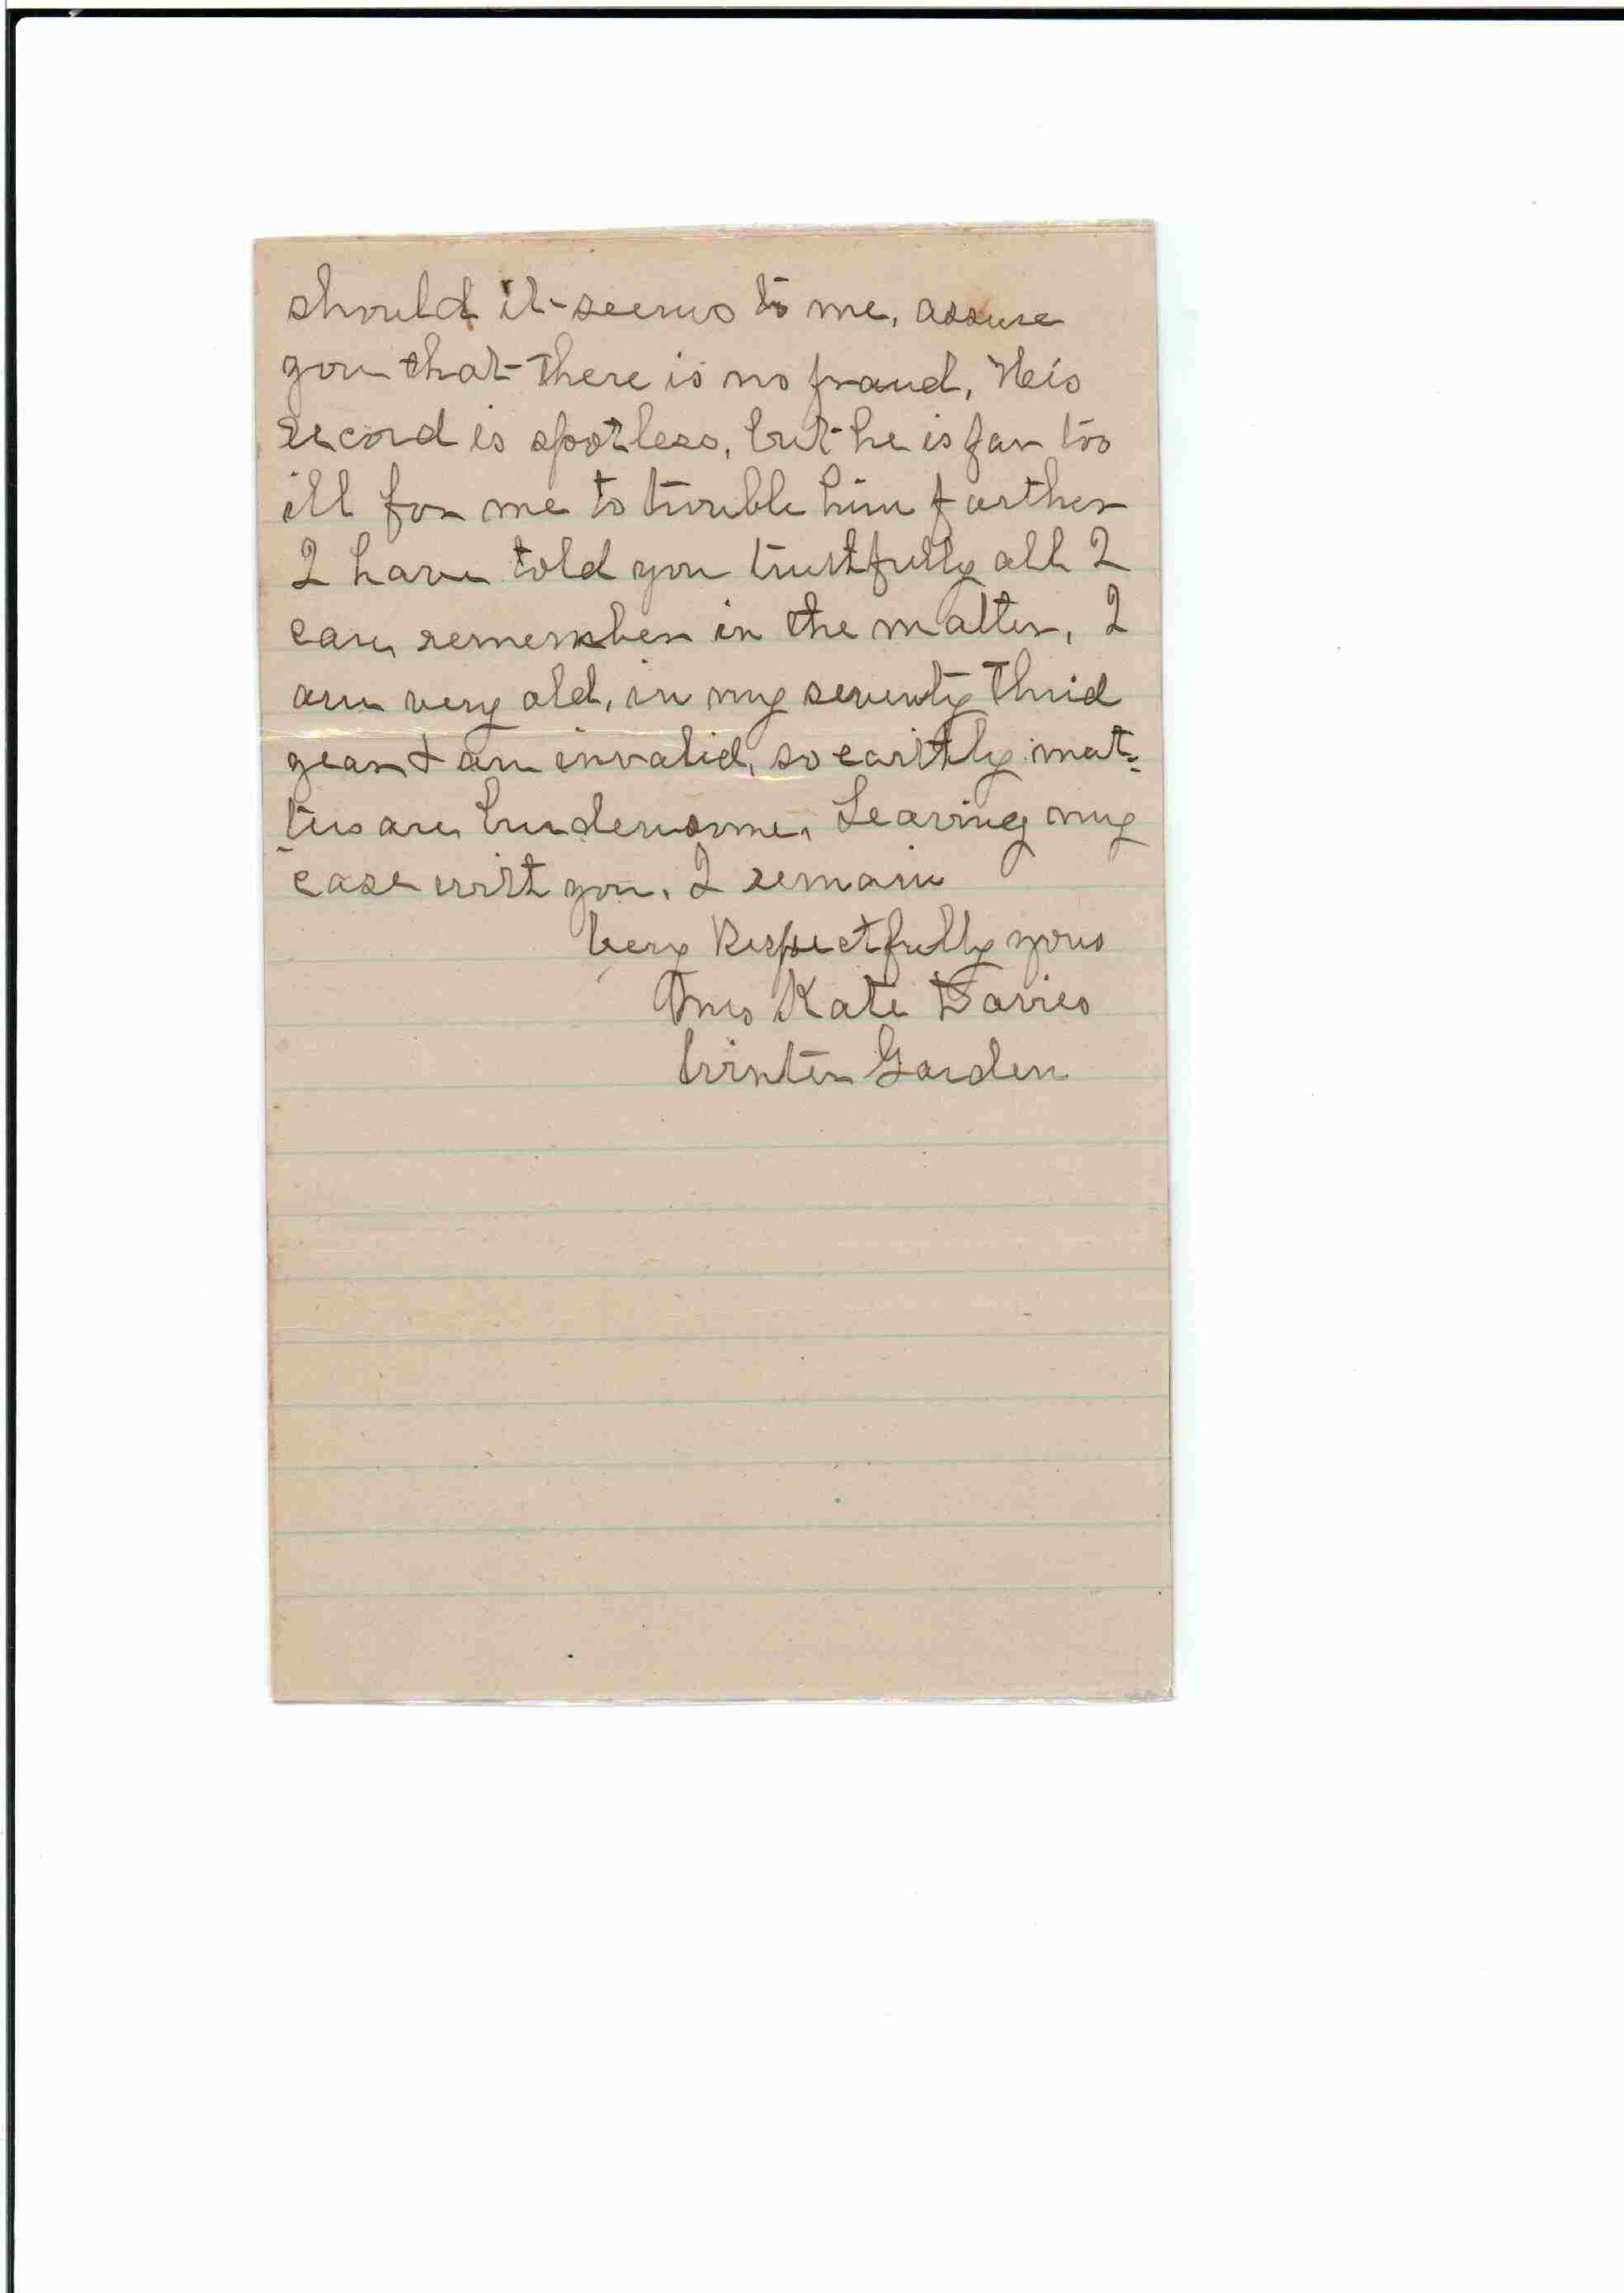 should it seems to me, assure
you that there is no fraud, His
record is spotless, but he is far too
ill for me to trouble him farther
I have told you trustfully all I
can remember in the matter, I
am very old, in my seventy third
year & an invalid, so earthly mat-
ters are burdensome. Leaving my
case with you. I remain
Very Respectfully yours
Mrs Kate Davies
Winter Garden